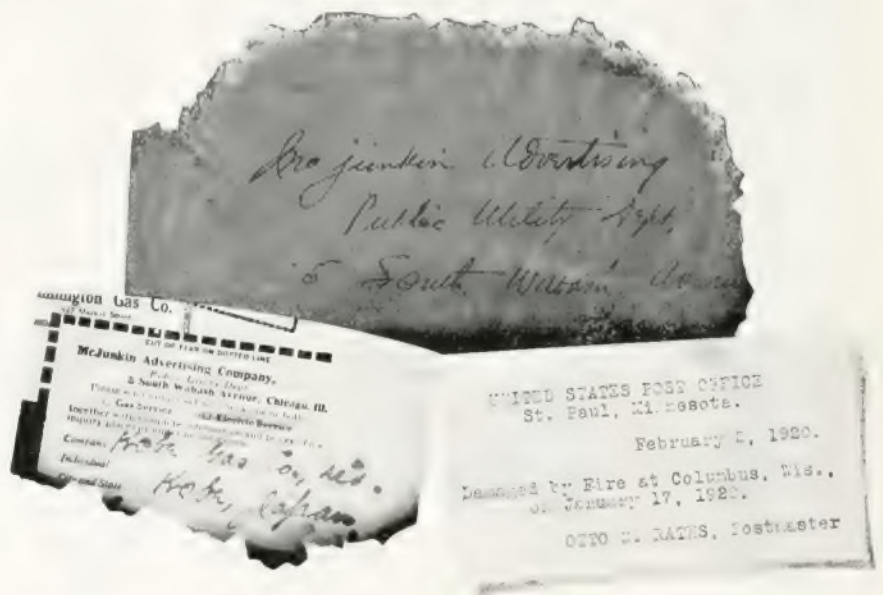 McJunkin Advertising
Public Utility Dept.
5 South Wabash Avenue
mington Gas Co.
Market Street
CUT OR TEAR ON DOTTED LINE
McJunkin Advertising Company,
Public Utility Dept.
5 South Wabash Avenue, Chicago, Ill.
Gas Service Electric Service
Company Kobe Gas Co., Ltd.
Individual
City and State Kobe, Japan
UNITED STATES POST OFFICE
St. Paul, Minnesota.
February 2, 1920.
Damaged by Fire at Columbus, Wis.,
on January 17, 1920.
OTTO N. RATHS, Postmaster